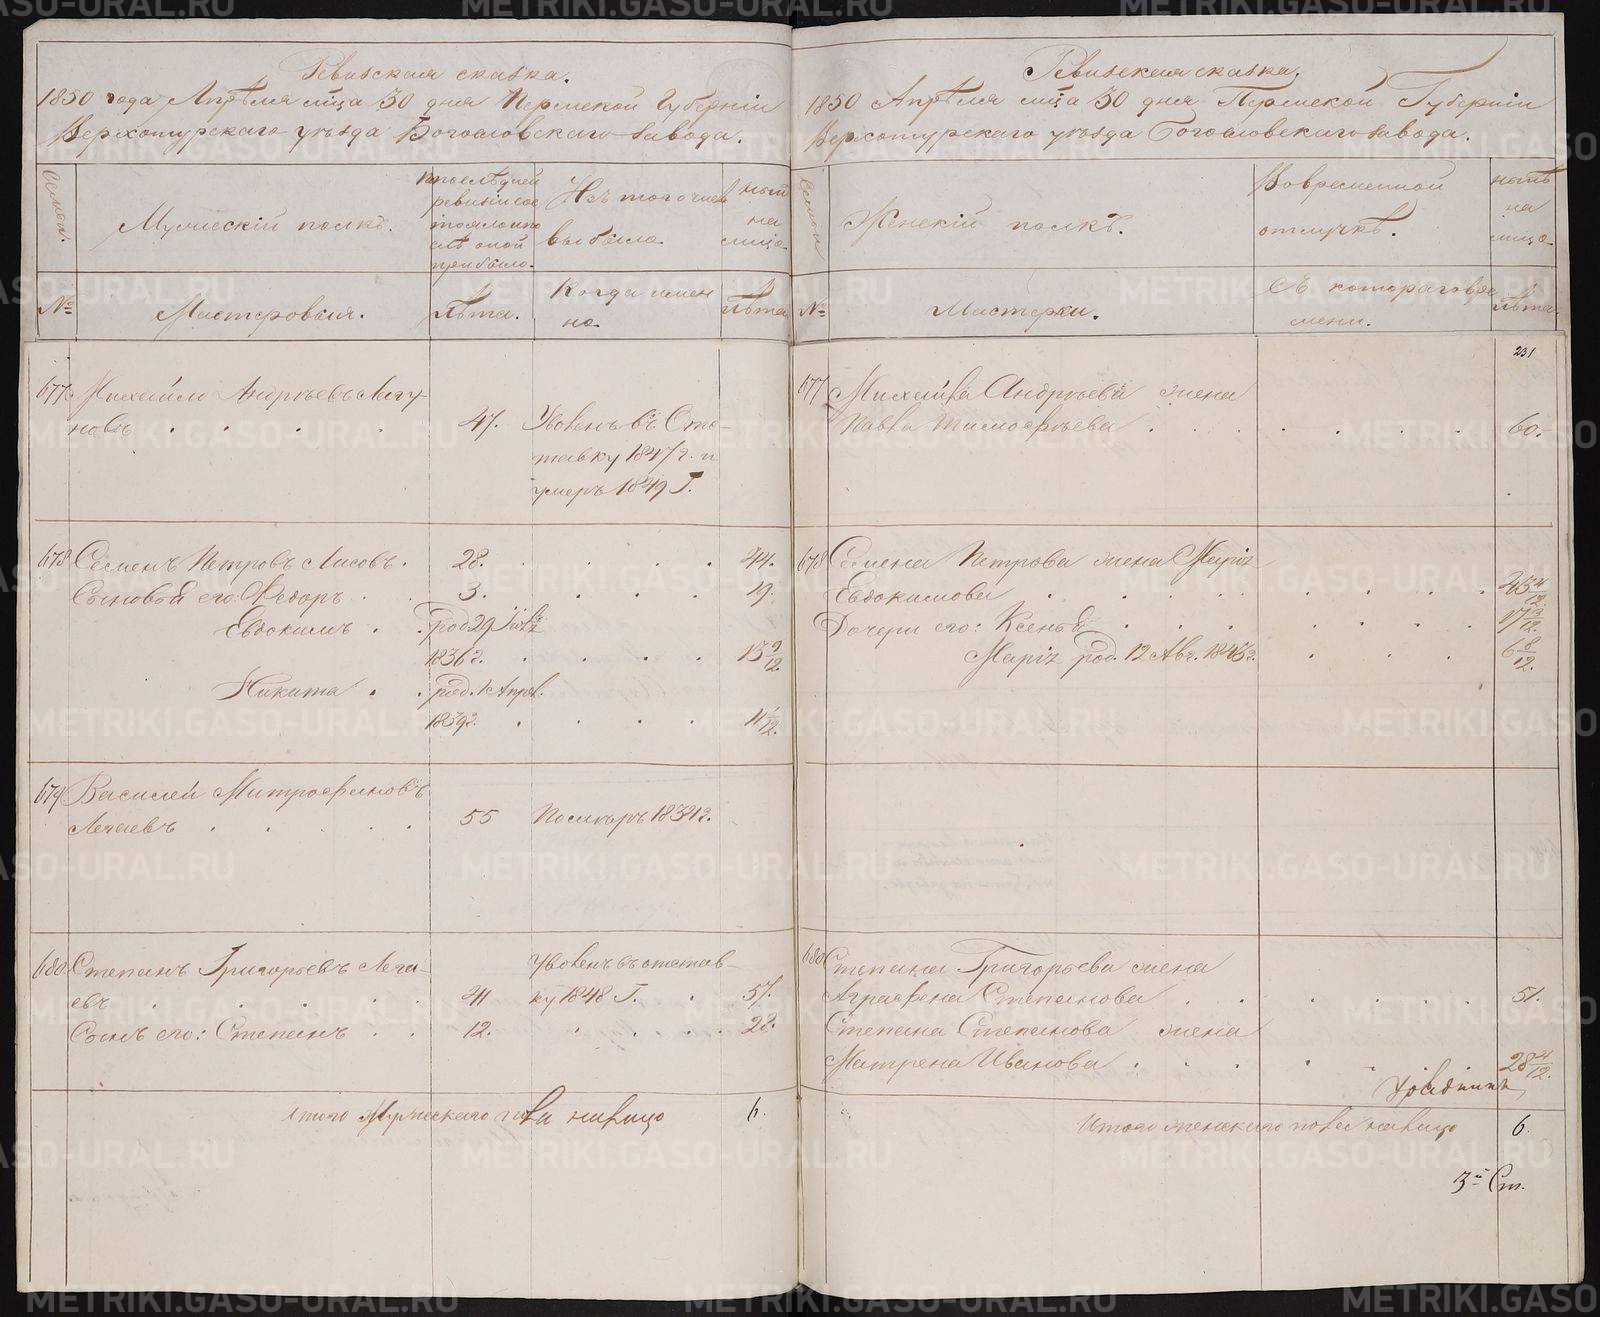 Ревизская сказка.
1850 года Апреля м͠ца 30 дня Пермской Губернiи
Верхотурскаго уезда Богословскаго завода.
Семьи.
Мужескiй полкъ.
По последней
ревизiи со
стояло и по
слѣ оной
прибыло.
Изъ того числа
выбыло
нынѣ
на
лицо
№
Мастеровыя.
Лѣта.
Когда имен
но.
Лѣта
677
Михайло Андрѣевъ Лагу
новъ
47.
Уволенъ въ От-
тавку 1847 г. и
умеръ 1849 Г.
678
Семенъ Петровъ Лисовъ.
28.
44.
Сыновья его: Федоръ
3.
19.
Евдокимъ
род 29 Iюля
1836 г.
13 9/12
Никита
род. 1 Апрел.
1839 г.
11 1/12.
679
Василей Митрофановъ
Лечаевъ
55
Помѣръ 1834 г.
680
Степанъ Григорьевъ Леча-
евъ
41
Уволенъ въ отстав-
ку 1848 Г.
57.
Сынъ его: Степанъ
12.
28.
Итого Мужескаго пола налицо
6.
Ревизская сказка.
1850 Апреля м͠ца 30 дня Пермской Губернiи
Верхотурскаго уезда Богословскаго завода.
Семьи
Женскiй полкъ.
Во временной
отлучкѣ.
нынѣ
на
лицо
№
Мастерки.
Съ котораго вре
мени.
Лѣта.
231
677
Михайла Андрѣева жена
Павла Тимофѣева
60.
678
Семена Петрова жена Марiя
Евдокимова
43 4/12
Дочери его: Ксенья
17 3/12.
Марiя род. 12 Авг. 1843 г.
6 8/12.
680
Степана Григорьева жена
Аграфена Степанова
51.
Степана Степанова жена
Матрена Иванова
28 4/12.
Итого женскаго пола налицо
6.
3й Ст.
METRIKI.GASO-URAL.RU